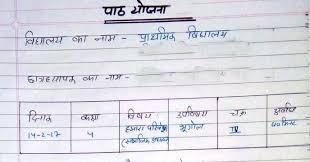 पाठ योजना
विद्यालय का नाम - प्राथमिक विद्यालय
छात्राध्यापक का नाम -
दिनांक कक्षा विषय उपविषय चक्र अवधि
14-2-17 4 हमारा परिवेश भूगोल IV
(सामाजिक अध्ययन)